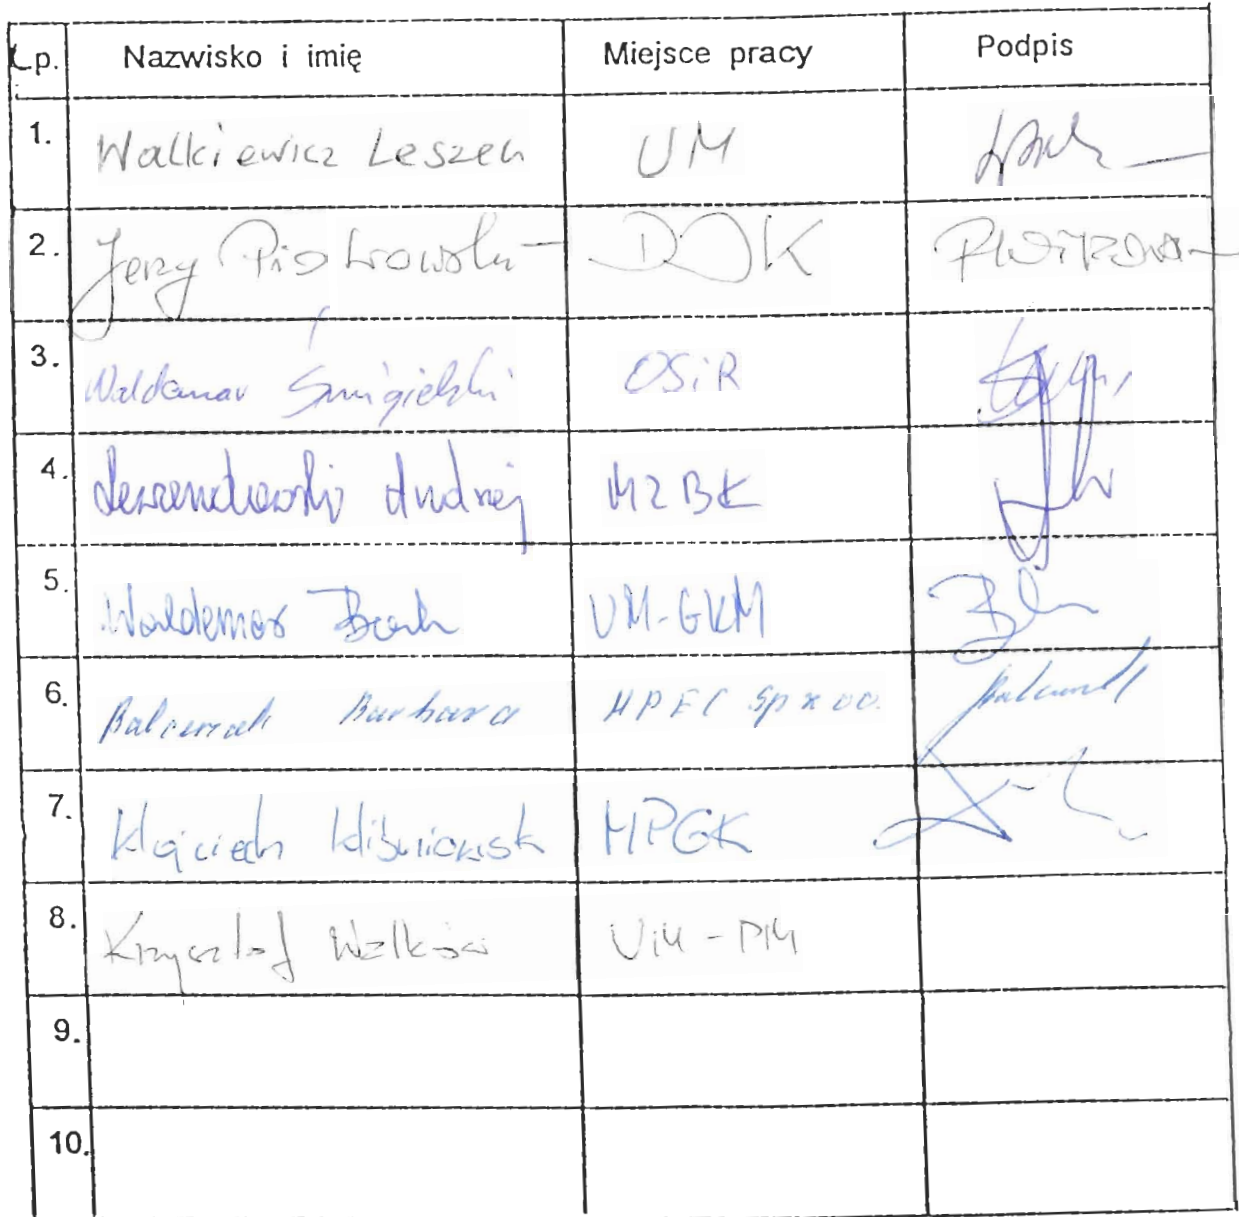 Lp. Nazwisko i imię Miejsce pracy Podpis
1. Walkiewicz Leszek UM
2. Jerzy Piotrowski DK
3. Waldemar Śmigielski OSiR
4. Lewandowski Andrzej MZBK
5. Waldemar UM-GKM
6. Balcerzak Barbara MPEC Sp z oo.
7. Wojciech MPGK
8. Krzysztof UM-PM
9.
10.